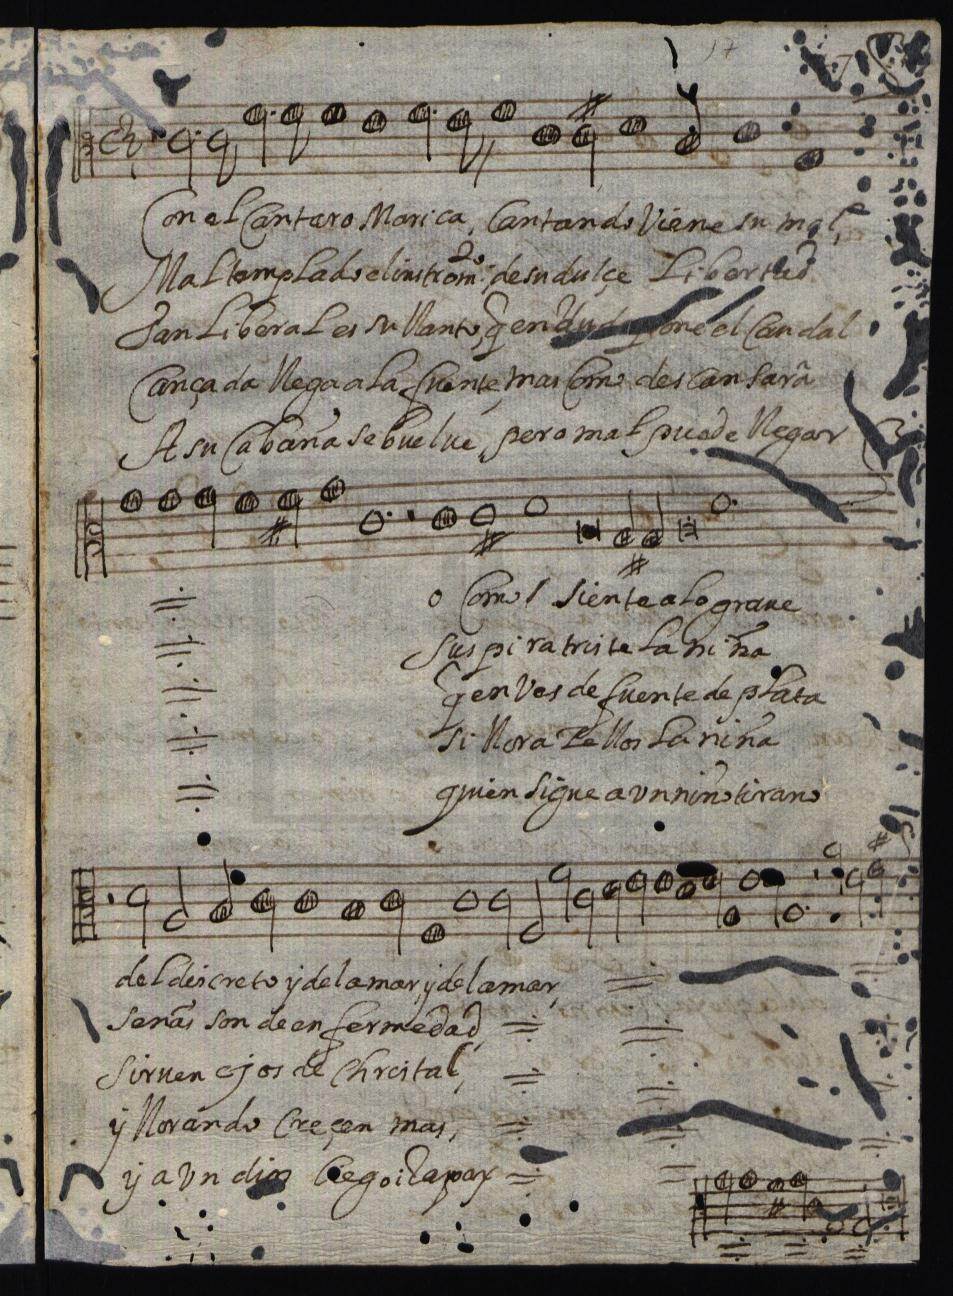 17
Con el Cantaro Marica, Cantando Viene su mal,
Mal templado el instrom.to de su dulçe Libertad
Tan Liberal es su llanto, q en pone el Caudal
Cançada llega a la fuente, mas Como descansarâ
A su Cabaña se buelue, pero mal puede llegar
o Como siente a lo graue
suspira triste la niña
q en Ves de fuente de plata
si llora Zellos la niña
quien sigue a vn niño tirano
del discreto y del amar, y del amar,
señas son de enfermedad,
siruen ojos de Christal,
y llorando Creçen mas,
y a Vn dios Çiego